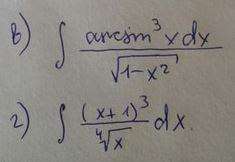 в) ∫ arcsin³x dx / √(1-x²)
г) ∫ (x+1)³ / ⁴√x dx.